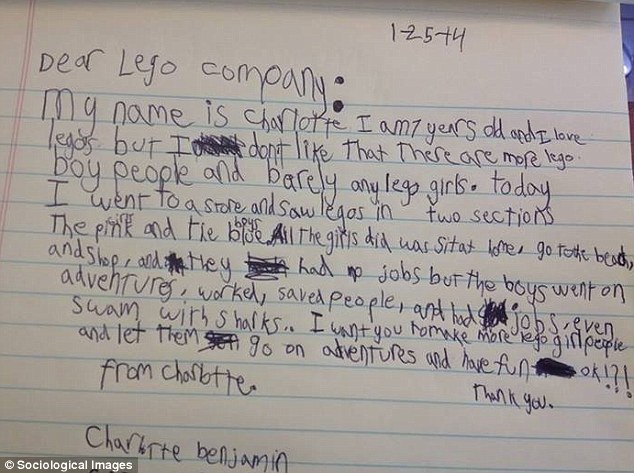 1-25-14
Dear Lego company:
My name is Charlotte I am 7 years old and I love
legos but I don't like that there are more lego
boy people and barely any lego girls. today
I went to a store and saw legos in two sections
The pink and the blue boys. All the girls did was sit at home, go to the beach,
and shop, and they had no jobs but the boys went on
adventures, worked, saved people, and had jobs, even
swam with sharks.. I want you to make more lego girl people
and let them go on adventures and have fun ok!?!
from Charlotte.
Thank you.
Charlotte benjamin
© Sociological Images